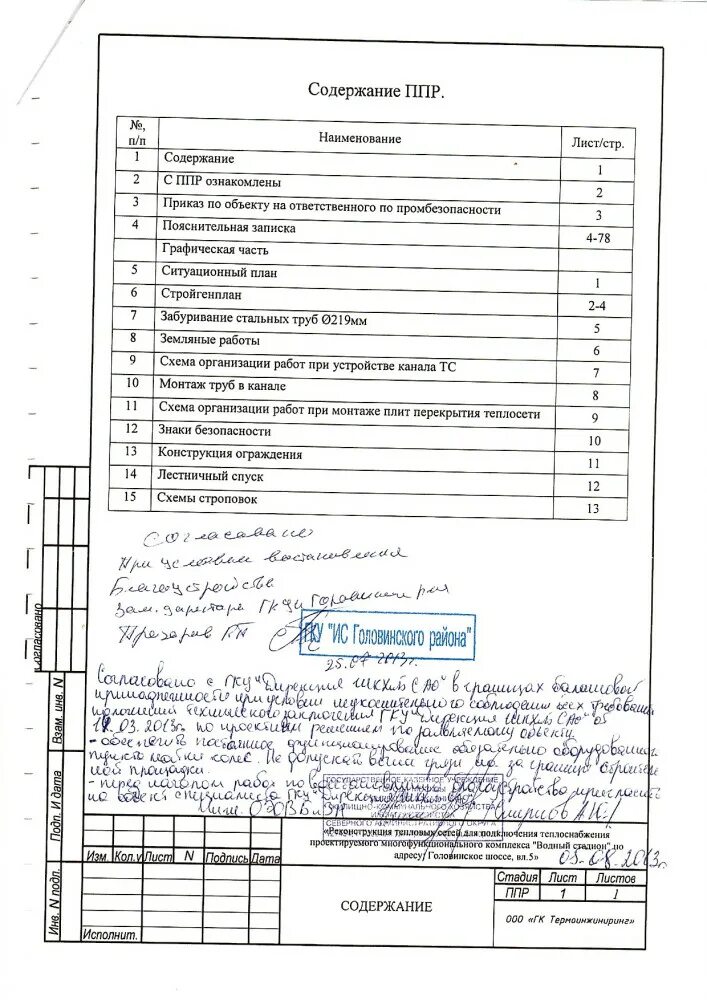 Содержание ППР.
№, п/п Наименование Лист/стр.
1 Содержание 1
2 С ППР ознакомлены 2
3 Приказ по объекту на ответственного по промбезопасности 3
4 Пояснительная записка 4-78
Графическая часть
5 Ситуационный план 1
6 Стройгенплан 2-4
7 Забуривание стальных труб Ø219мм 5
8 Земляные работы 6
9 Схема организации работ при устройстве канала ТС 7
10 Монтаж труб в канале 8
11 Схема организации работ при монтаже плит перекрытия теплосети 9
12 Знаки безопасности 10
13 Конструкция ограждения 11
14 Лестничный спуск 12
15 Схемы строповок 13
Согласовано
При условии востановления
Благоустройства
Зам. директора ГКУ
ГКУ "ИС Головинского района"
25.07.2013г.
Согласовано с ГКУ "Дирекция ЖКХиБ САО" в границах балансовой
принадлежности при условии неукоснительного соблюдения всех требований
положений технического заключения ГКУ "Дирекция ЖКХиБ САО" от
03.2013г. по проектным решениям по заявляемому объекту.
- обеспечить постоянное функционирование обязательно оборудованного
пункта мойки колес. Не допускать вынос грязи на за границу строитель-
ной площадки.
- перед началом работ по благоустройства пригласить
на объект специалиста ГКУ "Дирекция
ГОСУДАРСТВЕННОЕ КАЗЕННОЕ УЧРЕЖДЕНИЕ
ЖИЛИЩНО-КОММУНАЛЬНОГО ХОЗЯЙСТВА
СЕВЕРНОГО АДМИНИСТРАТИВНОГО ОКРУГА
Смирнов А.Ю.
«Реконструкция тепловых сетей для подключения теплоснабжения
проектируемого многофункционального комплекса "Водный стадион" по
адресу: Головинское шоссе, вл.5»
05.08.2013г.
Изм. Кол.у Лист N Подпись Дата
Стадия Лист Листов
ППР 1 1
СОДЕРЖАНИЕ
ООО «ГК Термоинжиниринг»
Исполнит.
Согласовано
Взам. инв. N
Подп. И дата
Инв. N подл.